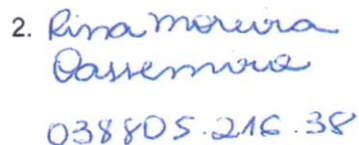 2. Rima Moreira
Cassemira
038805.216.38